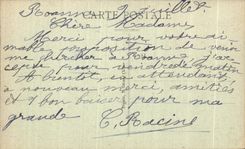 Roanne 9 juillet.
CARTE POSTALE
Chère Madame,
Merci pour votre ai-
mable proposition de venir
me chercher à Roanne, j'ac-
cepte pour vendredi matin
A bientôt, en attendant
à nouveau merci, amitiés
et 1 bon baiser pour ma
grande
C. Racine